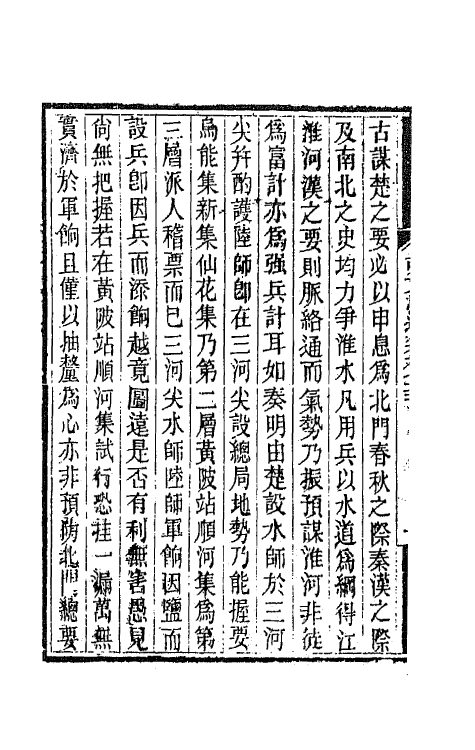 古謀楚之要必以申息爲北門春秋之際秦漢之際
及南北之史均力爭淮水凡用兵以水道爲綱得江
淮河漢之要則脈絡通而氣勢乃振預謀淮河非徒
爲富計亦爲強兵計耳如奏明由楚設水師於三河
尖幷酌護陸師卽在三河尖設總局地勢乃能握要
烏能集新集仙花集乃第二層黃陂站順河集爲第
三層派人稽票而已三河尖水師陸師軍餉因鹽而
設兵卽因兵而添餉越竟圖遠是否有利無害愚見
尙無把握若在黃陂站順河集試行恐挂一漏萬無
實濟於軍餉且僅以抽釐爲心亦非預防北門總要